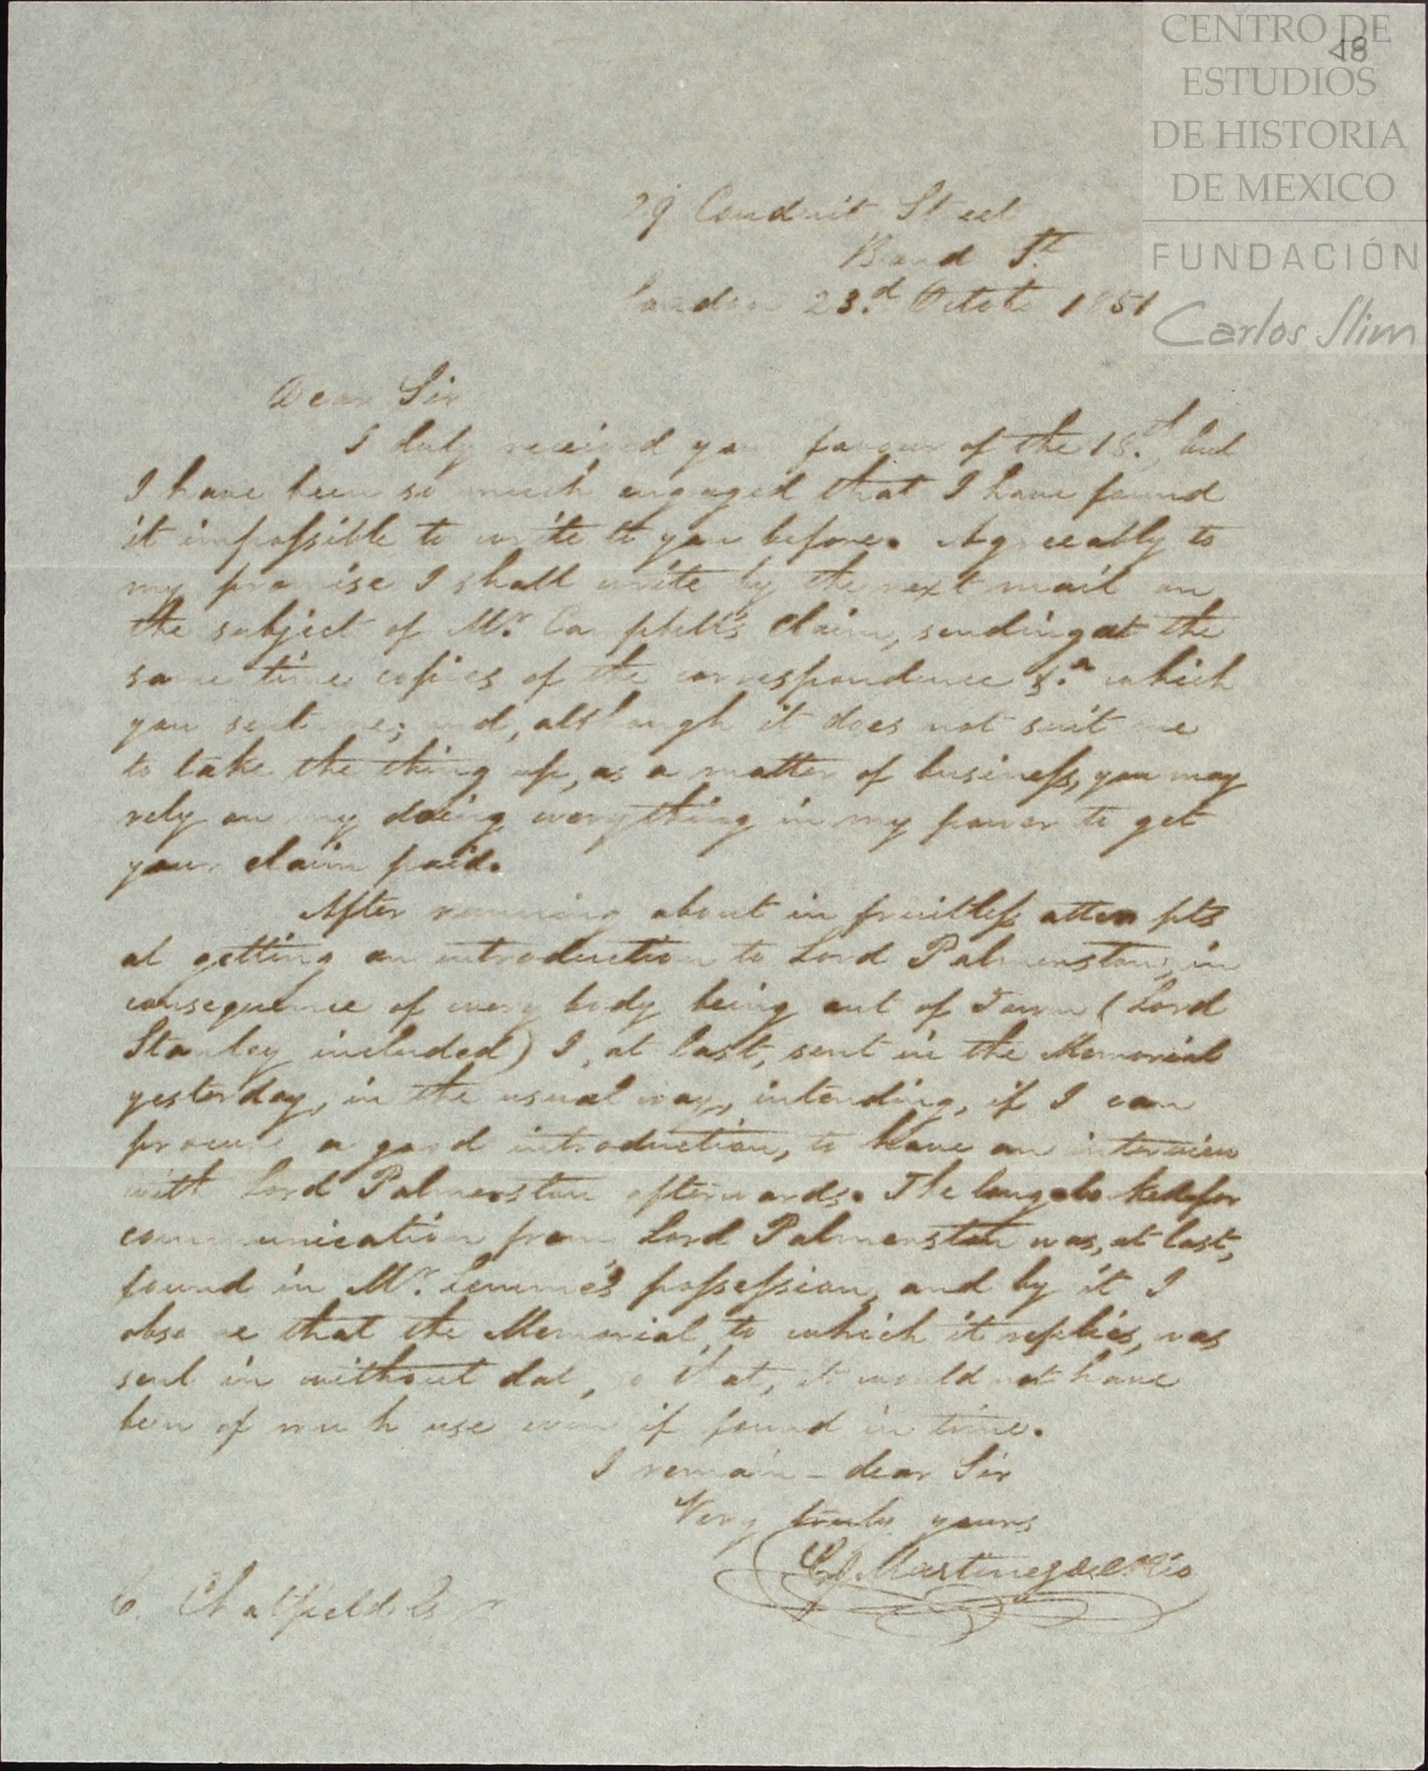 CENTRO DE
ESTUDIOS
DE HISTORIA
DE MEXICO
FUNDACIÓN
Carlos Slim
48
29 Conduit Street
Bond St.
London 23.d October 1851
Dear Sir
I duly received your favour of the 18.th, but
I have been so much engaged that I have found
it impossible to write to you before. Agreeably to
my promise I shall write by the next mail on
the subject of Mr. Campbell's claim, sending at the
same time copies of the correspondence &.a which
you sent me; and, although it does not suit me
to take the thing up, as a matter of business, you may
rely on my doing everything in my power to get
your claim paid.
After running about in fruitless attempts
at getting an introduction to Lord Palmerston, in
consequence of every body being out of Town (Lord
Stanley included) I, at last, sent in the Memorial
yesterday, in the usual way, intending, if I can
procure a good introduction, to have an interview
with Lord Palmerston afterwards. The long looked for
communication from Lord Palmerston was, at last,
found in Mr. possession, and by it I
observe that the Memorial, to which it replies, was
sent in without date, so that, it would not have
been of much use even if found in time.
I remain - dear Sir
Very truly yours
Martinez del Rio
Chatfield Esqr